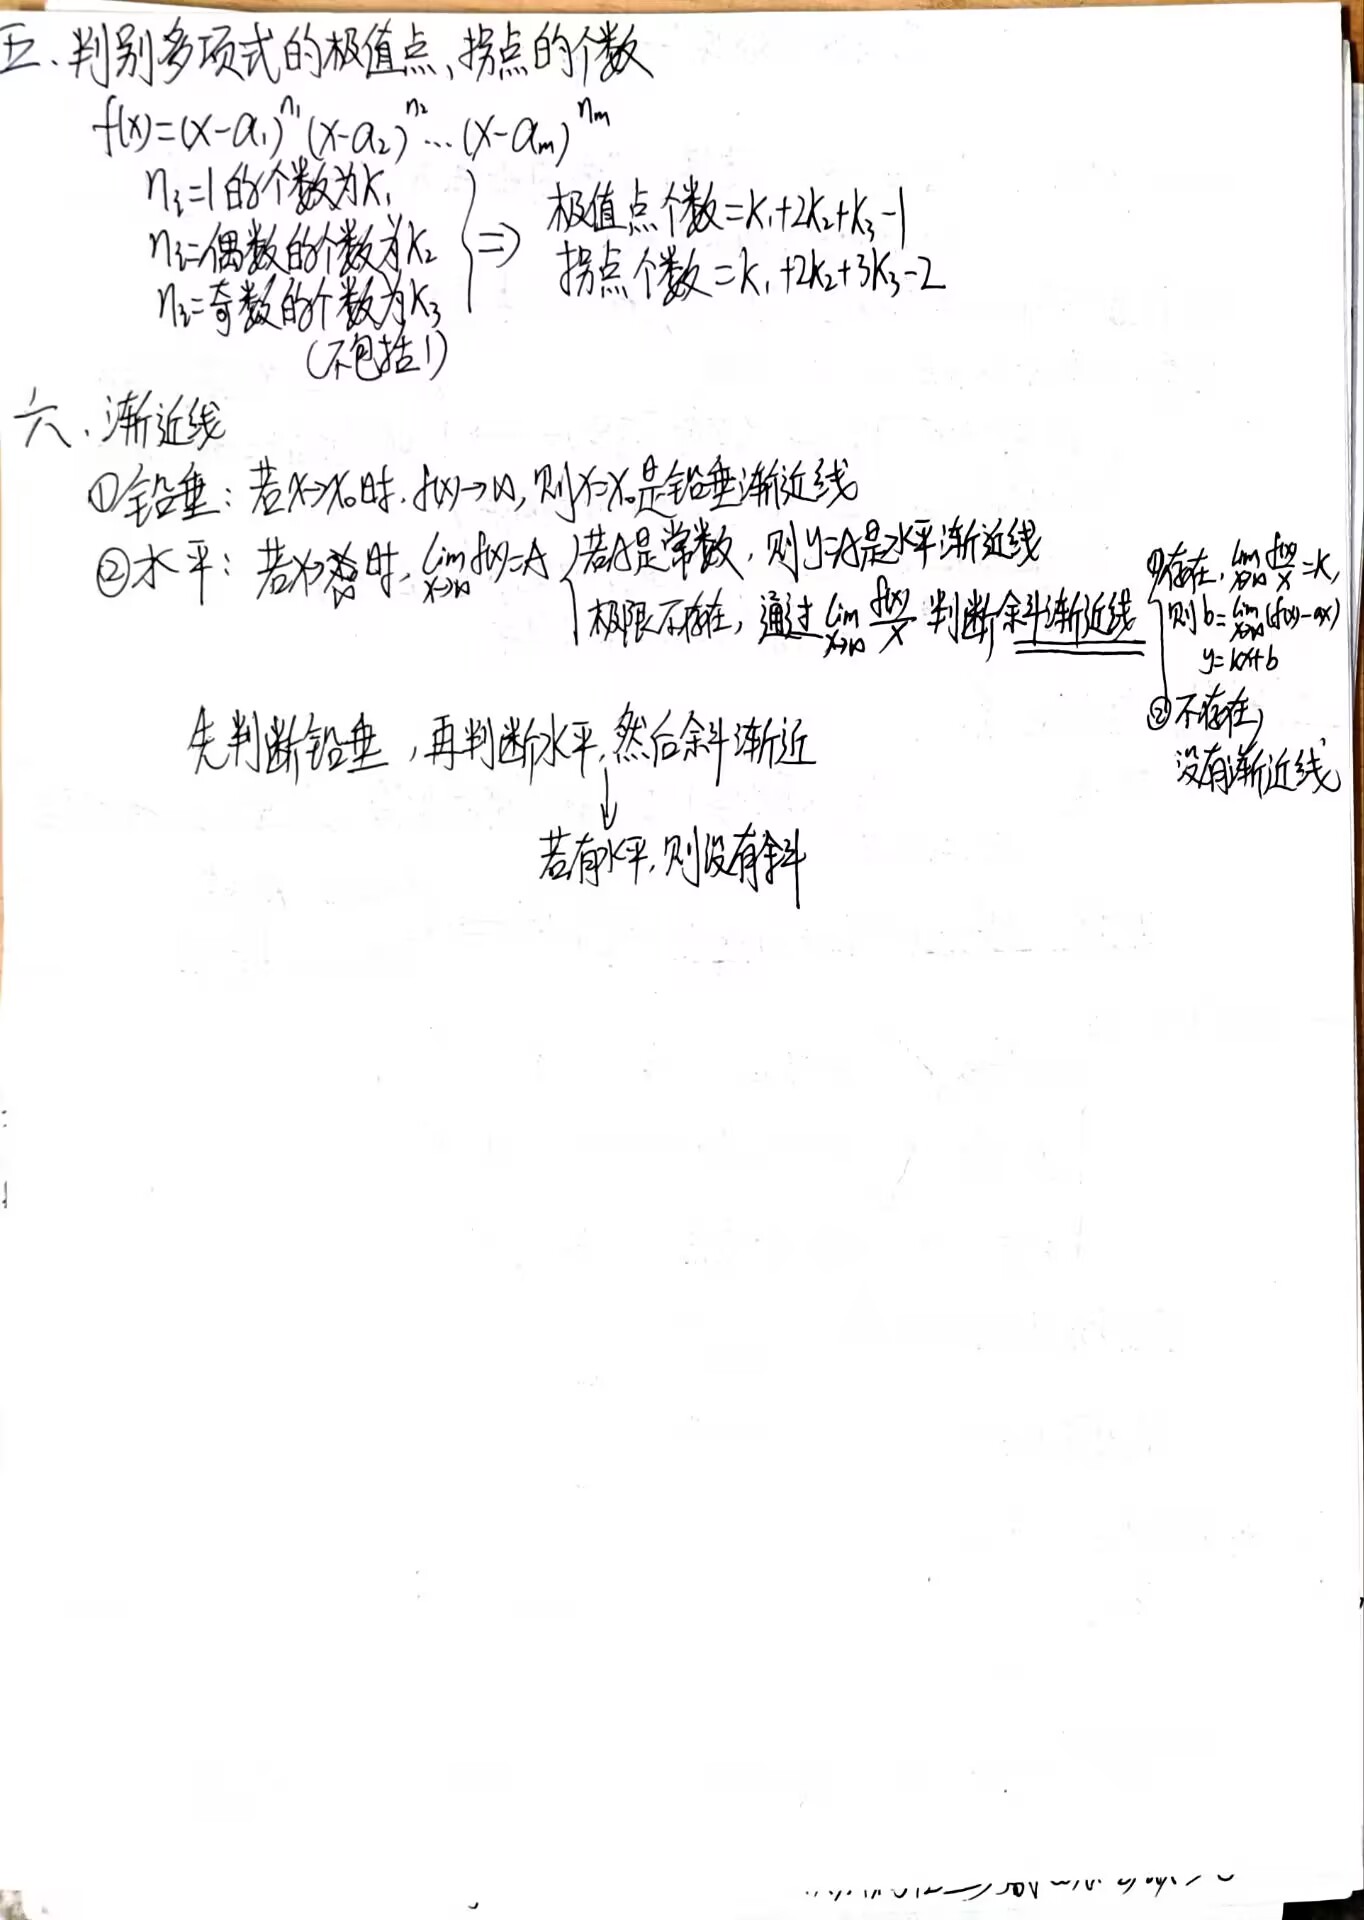 五、判别多项式的极值点、拐点的个数
f(x)=(x-a₁)^n₁ (x-a₂)^n₂ … (x-aₘ)^nₘ
nᵢ=1的个数为k₁
nᵢ=偶数的个数为k₂
nᵢ=奇数的个数为k₃
(不包括1)
⇒ 极值点个数=k₁+2k₂+k₃-1
拐点个数=k₁+2k₂+3k₃-2
六、渐近线
①铅垂：若x→x₀时，f(x)→∞，则x=x₀是铅垂渐近线
②水平：若x→∞时，lim x→∞ f(x)=A { 若A是常数，则y=A是水平渐近线
极限不存在，通过 lim x→∞ f(x)/x 判断斜渐近线
①存在，lim x→∞ f(x)/x =k，
则b=lim x→∞ (f(x)-ax)
y=kx+b
②不存在，
没有渐近线
先判断铅垂，再判断水平，然后斜渐近
↓
若有水平，则没有斜